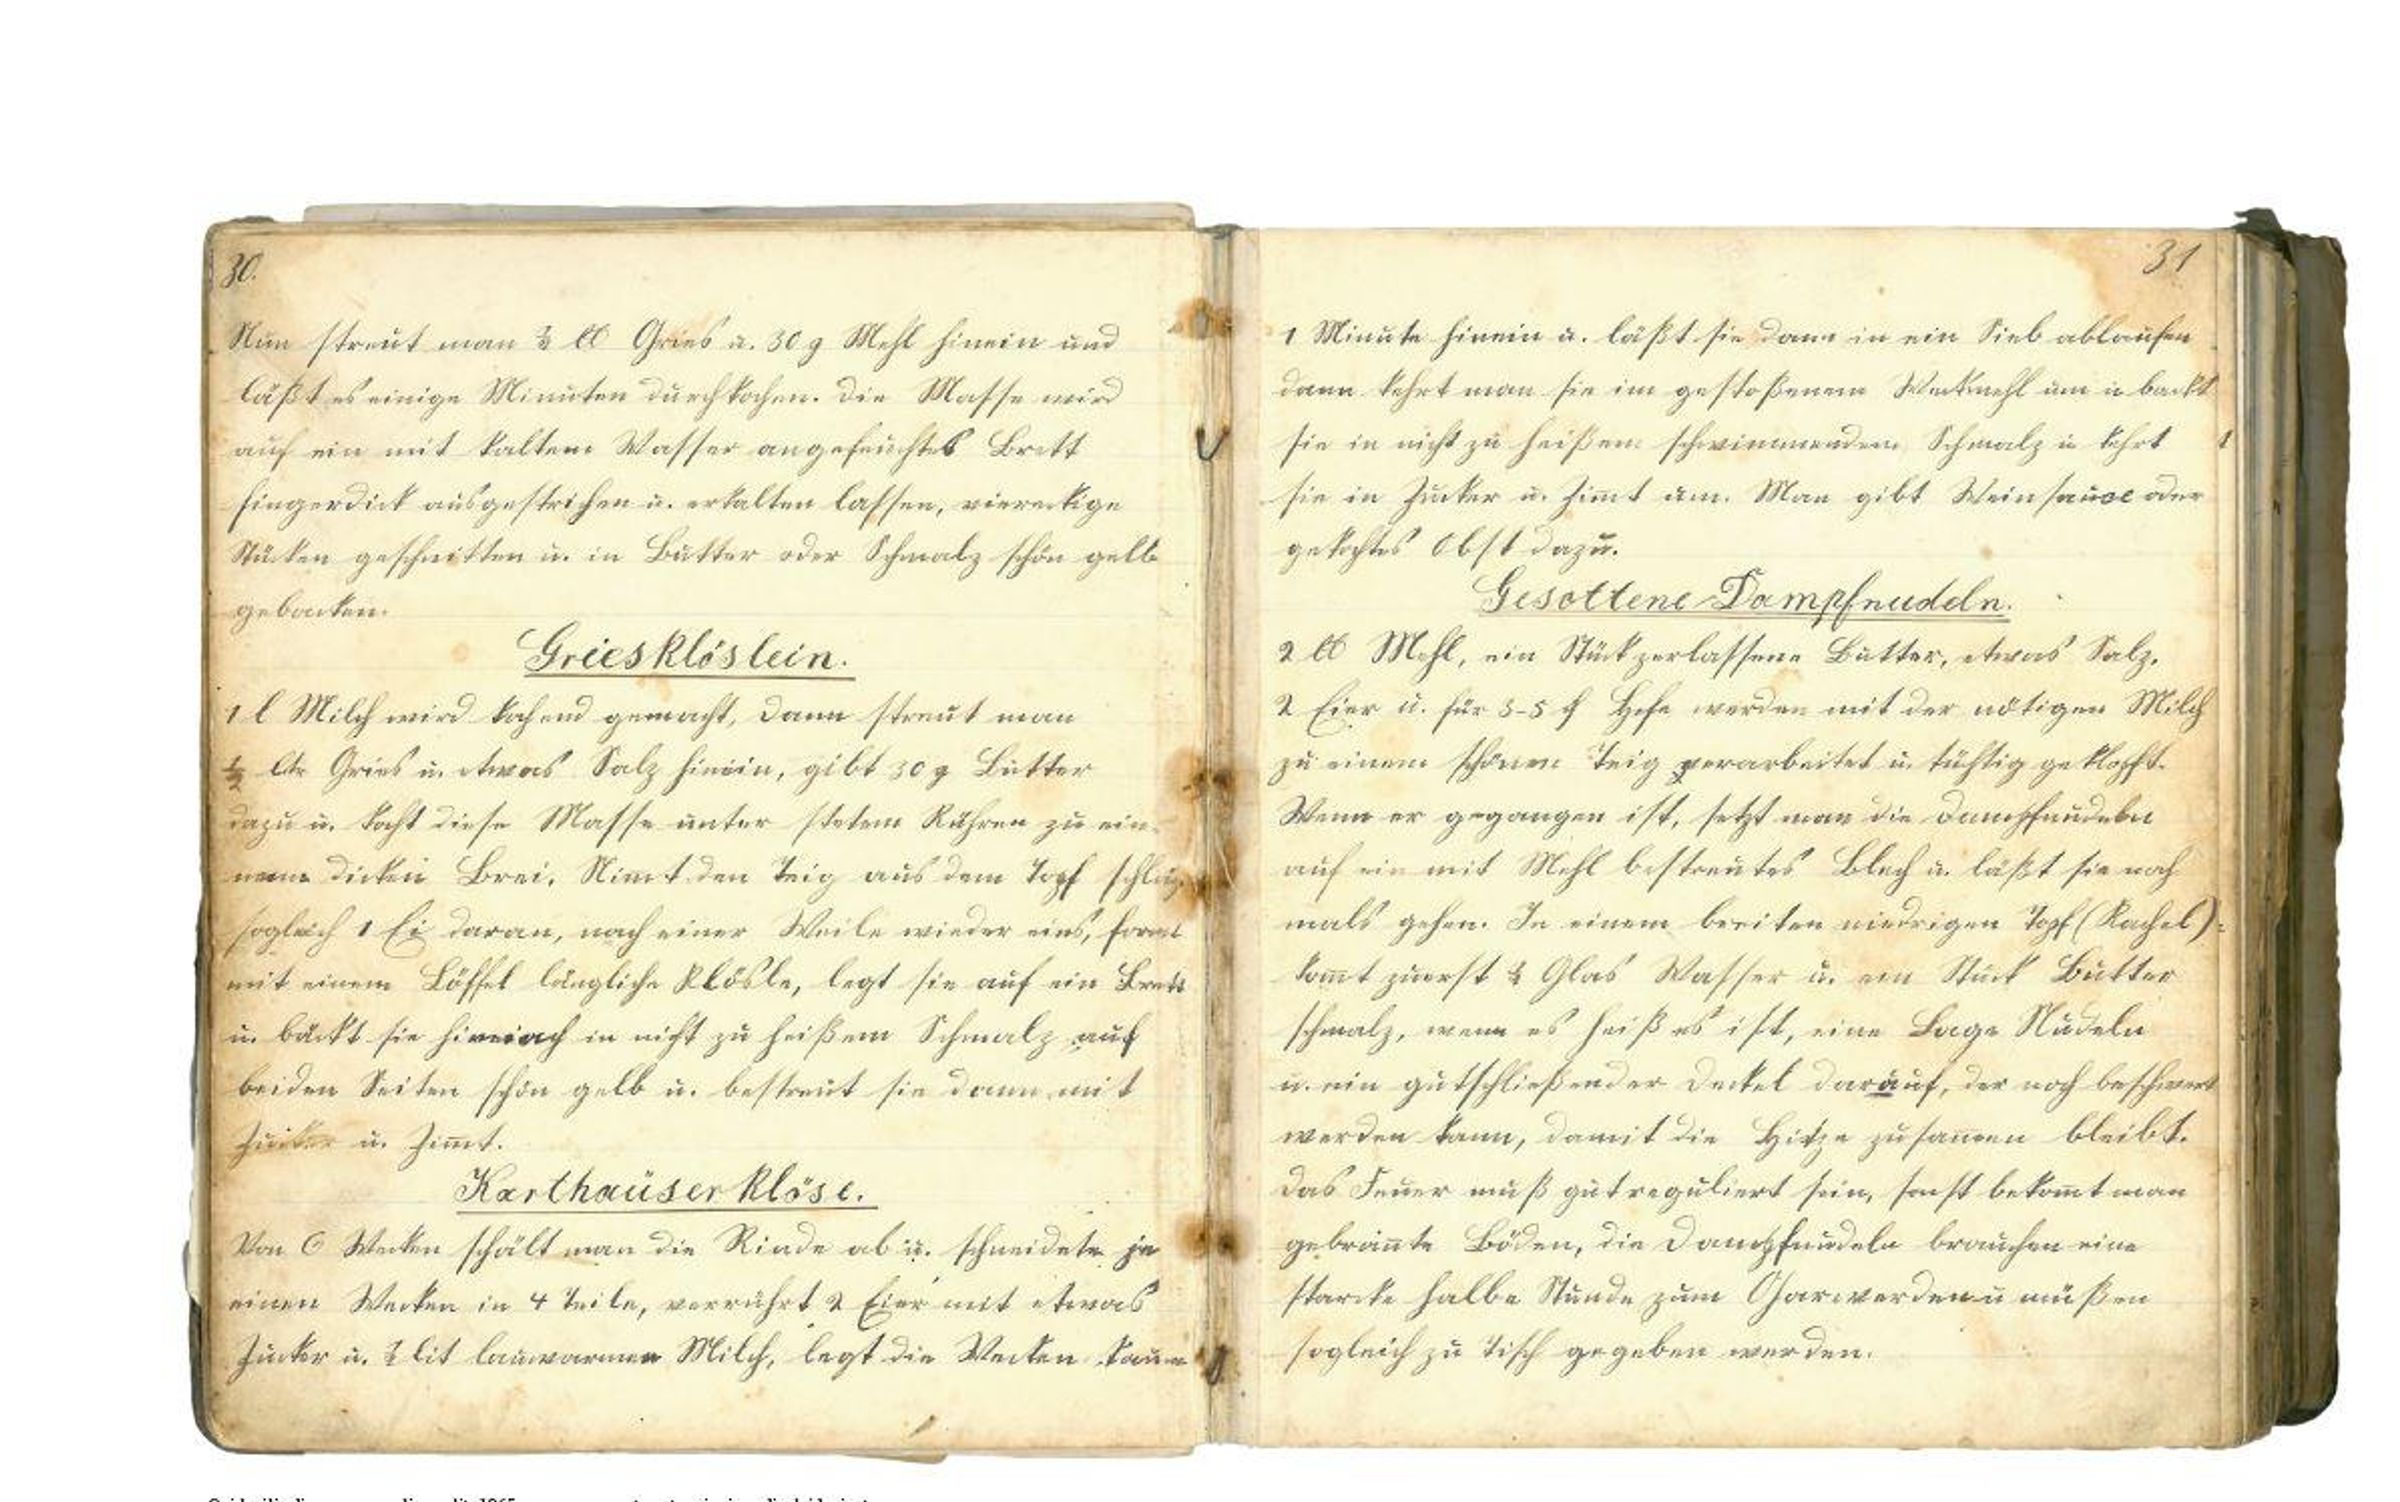 30.
Nun streut man ½ ℔ Gries u. 30 g Mehl hinein und
läßt es einige Minuten durchkochen. Die Masse wird
auf ein mit kaltem Wasser angefeuchtes Brett
fingerdick ausgestrichen u. erkalten lassen, viereckige
Stücken geschnitten u. in Butter oder Schmalz schön gelb
gebacken.
Griesklöslein.
1 l Milch wird kochend gemacht, dann streut man
½ Ltr Gries u. etwas Salz hinein, gibt 30 g Butter
dazu u. kocht diese Masse unter stetem Rühren zu ein-
nem dicken Brei. Nimt den Teig aus dem Topf schlägt
sogleich 1 Ei daran, nach einer Weile wieder eins, formt
mit einem Löffel längliche Klösle, legt sie auf ein Brett
u. bäckt sie hernach in nicht zu heißem Schmalz auf
beiden Seiten schön gelb u. bestreut sie dann mit
Zucker u. Zimmt.
Karthaüserklöse.
Von 6 Wecken schält man die Rinde ab u. schneidete je
einen Wecken in 4 Teile, verrührt 2 Eier mit etwas
Zucker u. ½ lit lauwarmen Milch, legt die Wecken kaum
31
1 Minute hinein u. läßt sie dann in ein Sieb ablaufen
dann kehrt man sie im gestoßenem Weckmehl um u backt
sie in nicht zu heißem schwimmendem Schmalz u kehrt
sie in Zucker u. Zimmt um. Man gibt Weinsauce oder
gekochtes Obst dazu.
Gesottene-Dampfnudeln.
2 ℔ Mehl, ein Stück zerlassene Butter, etwas Salz,
2 Eier u. für 3-5 ₰ Hefe werden mit der nötigen Milch
zu einem schönen Teig verarbeitet u. tüchtig geklopft.
Wenn er gegangen ist, setzt man die Dampfnudeln
auf ein mit Mehl bestreutes Blech u. läßt sie noch
mals gehen. In einem breiten niedrigen Topf (Kachel)
kommt zuerst ½ Glas Wasser u. ein Stück Butter
schmalz, wenn es heiß es ist, eine Lage Nudeln
u. ein gutschließender Deckel darauf, der noch beschwert
werden kann, damit die Hitze zusammen bleibt.
Das Feuer muß gut reguliert sein, sonst bekommt man
gebrannte Böden, die Dampfnudeln brauchen eine
starcke halbe Stunde zum Garwerden u müßen
sogleich zu Tisch gegeben werden.